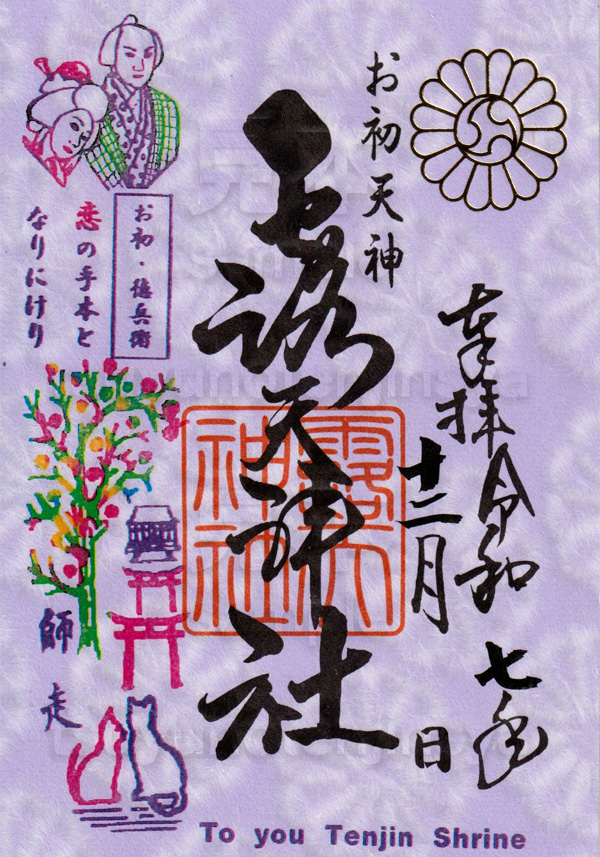 奉拝 令和七年
十二月 日
お初天神
露天神社
露天
神社
お初・徳兵衛
恋の手本と
なりにけり
師走
To you Tenjin Shrine